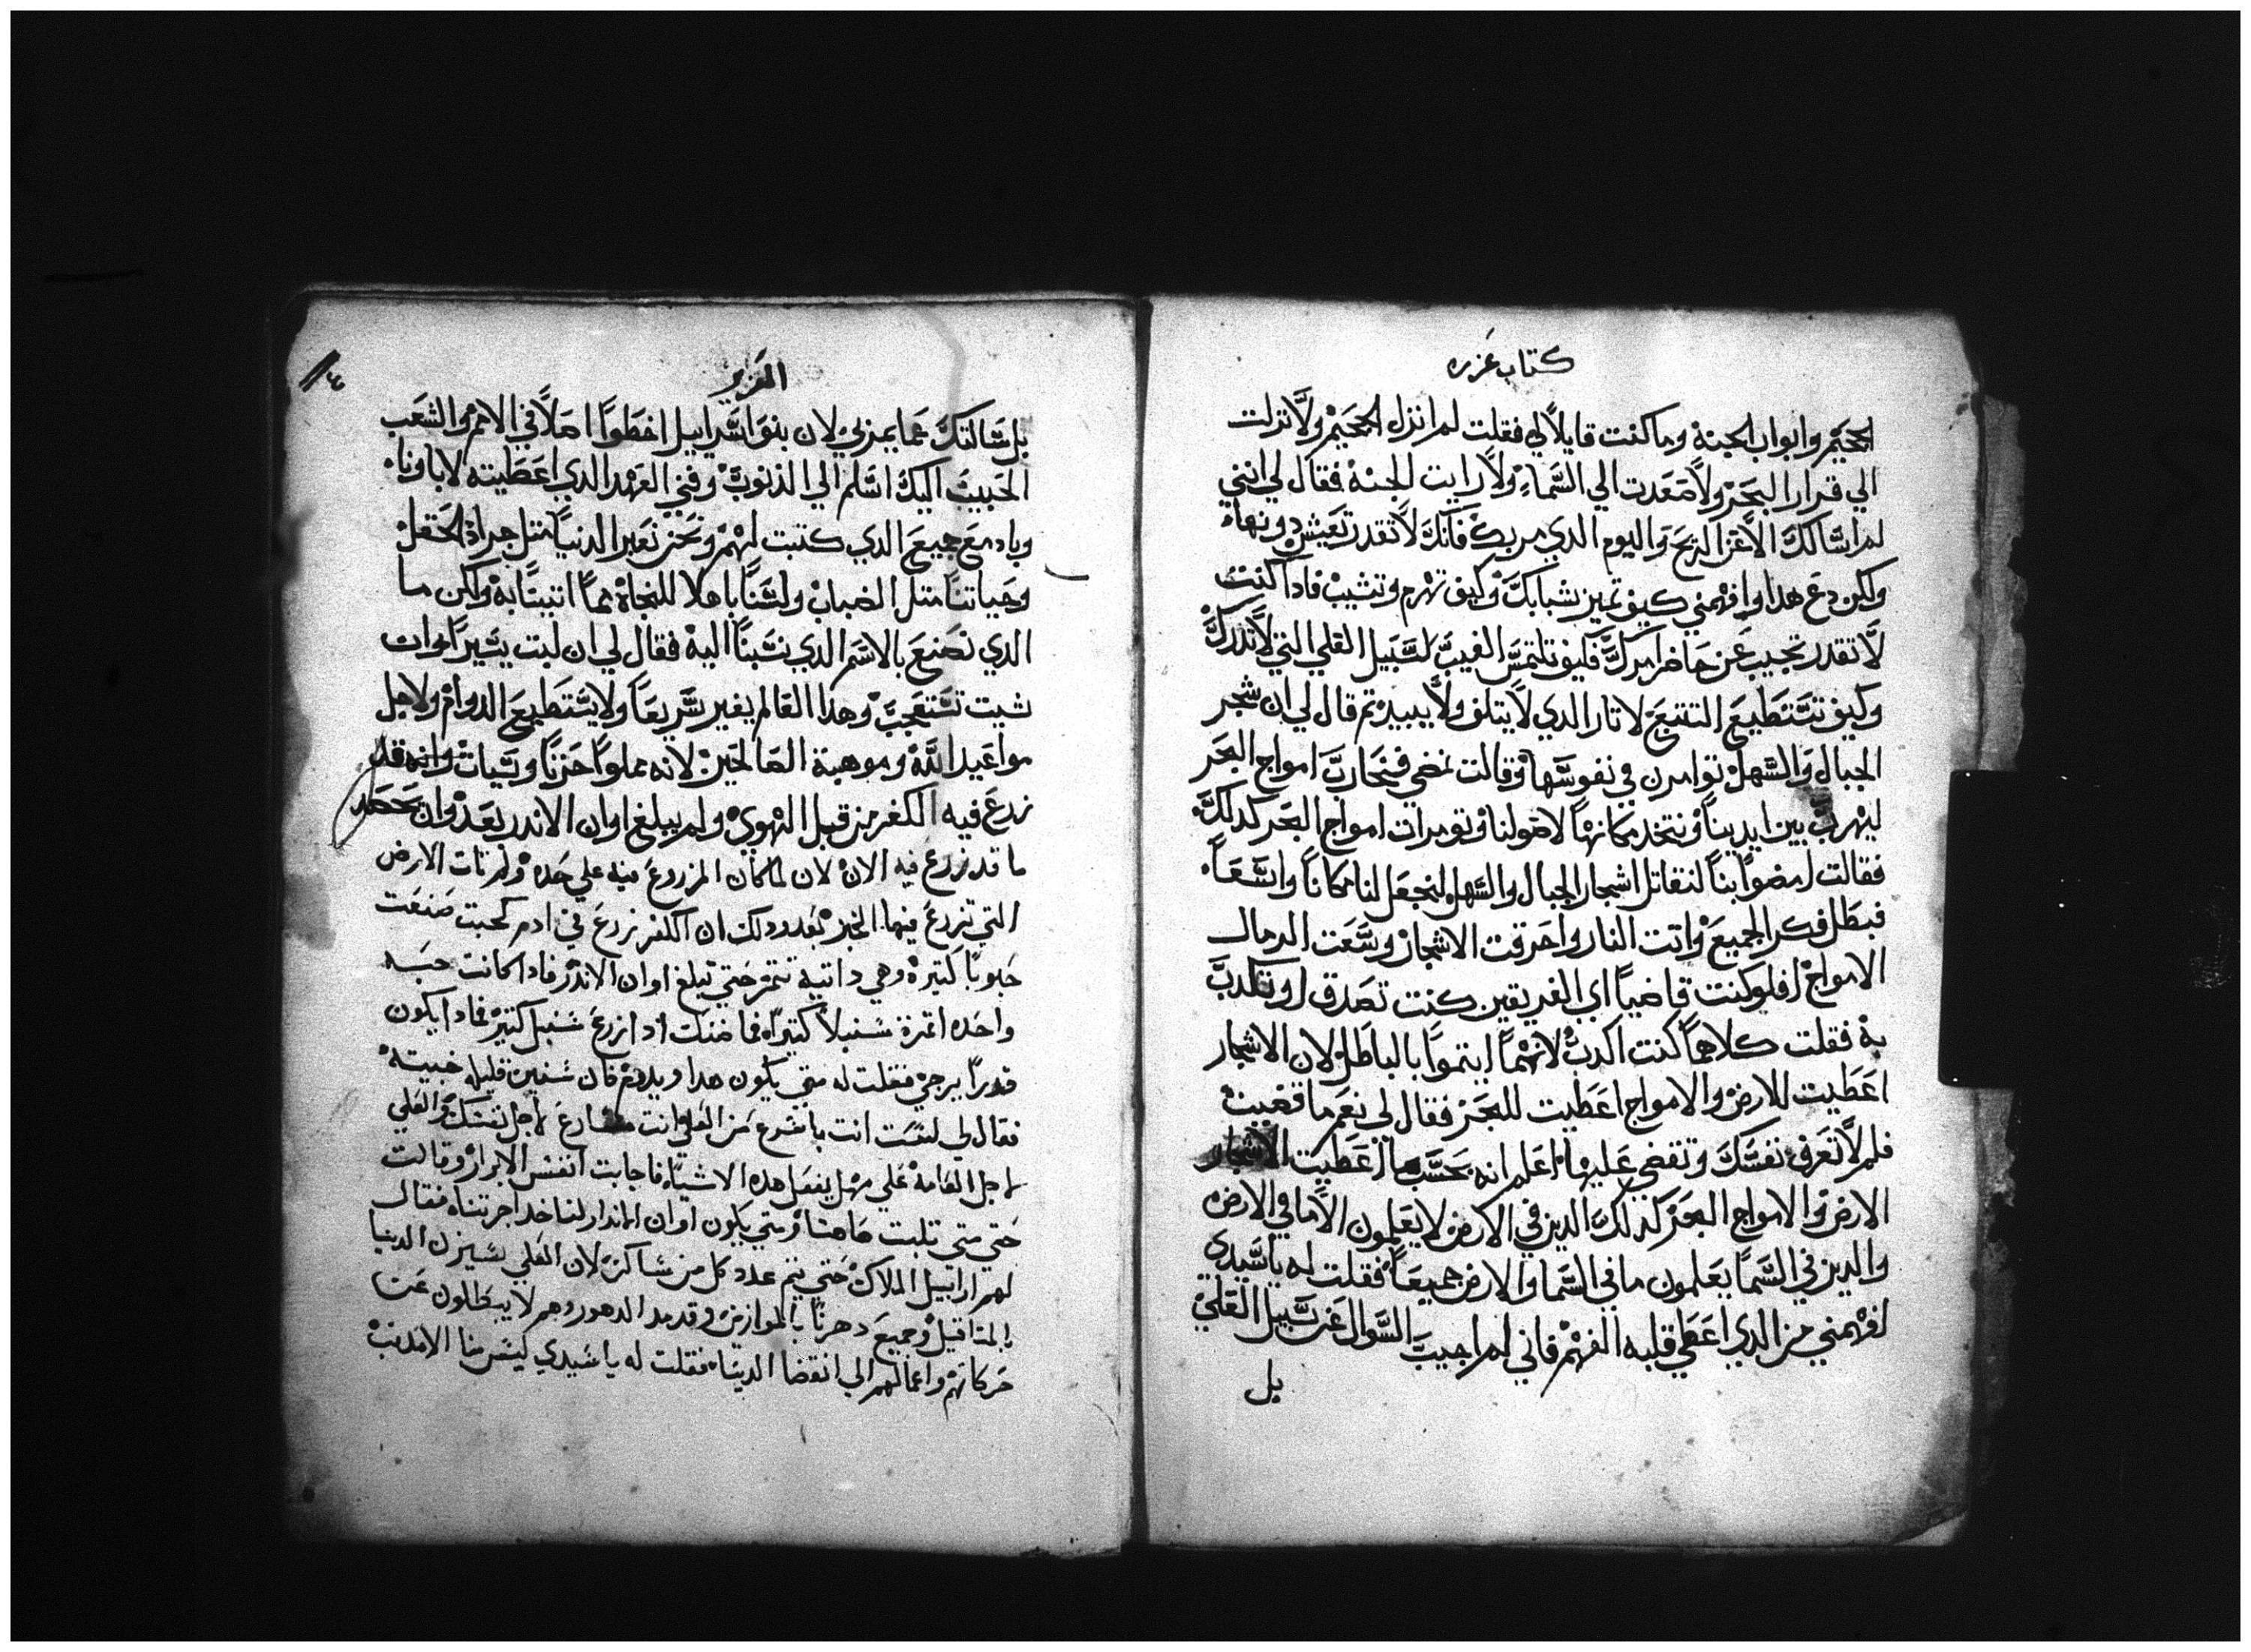 كتاب عزره
الجحيم وابواب الجنة وما كنت قايلاً لي فقلت لم انزل الجحيم ولا نزلت
الي قرار البحر ولا صعدت الي السماء ولا رايت الجنة فقال لي انني
لم اسالك الا عن الريح واليوم الدي مر بك فانك لا تقدر تعيش دونها
ولكن دع هدا وافهمني كيف تميز شبابك وكيف تهرم وتشيب فادا كنت
لا تقدر تجيب عن حاضر امرك فكيف تلتمس الغيب لسبيل العلي التي لا تدرك
وكيف تستطيع التتبع لاثار الدي لا يتلف ولا يبيد تم قال لي ان شجر
الجبال والسهل توامرن في نفوسها وقالت نمضي فنحارب امواج البحر
ليهرب بين ايدينا ونتخد مكانها لاصولنا وتومرات امواج البحر كدلك
فقالت امضوا بنا لنقاتل اشجار الجبال والسهل لنجعل لنا مكاناً واسعاً
فبطل فكر الجميع واتت النار واحرقت الاشجار وسعت الرمال
الامواج افلو كنت قاضياً اي الفريقين كنت تصدق او تكدب
به فقلت كلاهما كنت اكدب لانهما ايتموا بالباطل لان الاشجار
اعطيت للارض والامواج اعطيت للبحر فقال لي نعم ما قضيت
فلم لا تعرف نفسك وتقضي عليها اعلم انه بحسب ما اعطيت الاشجار
الارض والامواج البحر كدلك الدين في الارض لا يعلمون الا ما في الارض
والدين في السما يعلمون ما في السما والارض جميعاً فقلت له يا سيدي
افهمني من الدي اعطي قلبه الفهم فاني لم اجيب السوال عن سبيل العلي
بل
العزير
بل سالتك عما يمر بي لان بنو اسراييل اخطوا اهلاً في الامم والشعب
الحبيب اليك اسلم الي الذنوب وفني العهد الدي اعطيته لاباونا
وباد مع جميع الدي كتبت لهم ونحن نعبر الدنيا متل جراد الحقل
وحياتنا متل الضباب ولسنا باهلا للنجاة مما اتيتنا به ولكن ما
الدي نصنع بالاسم الدي نسبنا اليه فقال لي ان لبت يسيراً وان
شيت تستعجب وهدا العالم يغير سريعاً ولا يستطيع الدوام ولاجل
مواعيد الله وموهبة الصالحين لانه مملوا حزناً وسيات وانه قد
زرع فيه الكفر من قبل الهوي ولم يبلغ اوان الاندر بعد وان يحصد
ما قد زرع فيه الان لان لما كان المزروع فيه علي حده ولم تات الارض
التي تزرع فيها الخير بعد ودلك ان الكفر زرع في ادم كحبت صنعت
حبوباً كتيرة وهي داتيه تتمر حتي تبلغ اوان الاندر فادا كانت حبه
واحده اتمرة سنبلاً كتيراً فما ضنك ادا زرع سنبل كتير فمادا يكون
قدراً يرجي فقلت له متي يكون هدا ويدوم فان سنين قليله خبيته
فقال لي لست انت باسرع من العلي انت مسارع لاجل نفسك والعلي
لاجل العامة علي مهل يفعل هده الاشيا فاجابت انفس الابرار وقالت
حتي متي تلبت هاهنا ومتي يكون اوان الاندار لنا خد اجرتنا فقال
لهم ارابييل الملاك حتي يتم عدد كل من شاكرك لان العلي سيزن الدنيا
بالمتاقيل وجميع دهرنا بالموازين وقد مد الدهور وهم لا يبطلون عن
حركاتهم واعمالهم الي انقضا الدنيا فقلت له يا سيدي كيف منا الامدنب